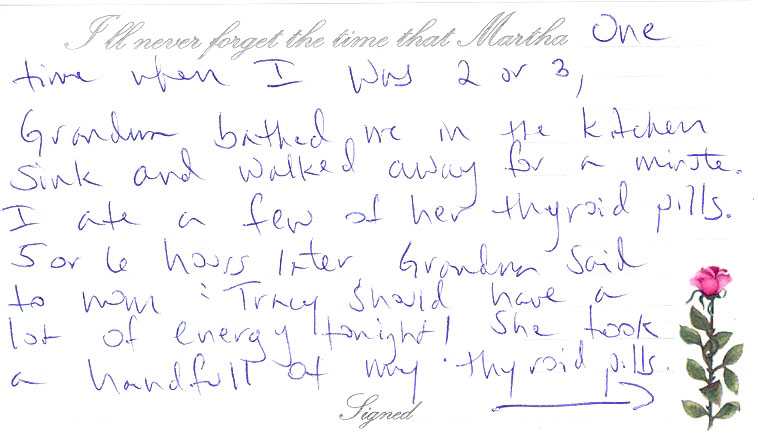 I'll never forget the time that Martha One
time when I was 2 or 3,
Grandma bathed me in the kitchen
sink and walked away for a minute.
I ate a few of her thyroid pills.
5 or 6 hours later, Grandma said
to mom: "Tracy should have a
lot of energy tonight! She took
a handfull of my thyroid pills.
Signed